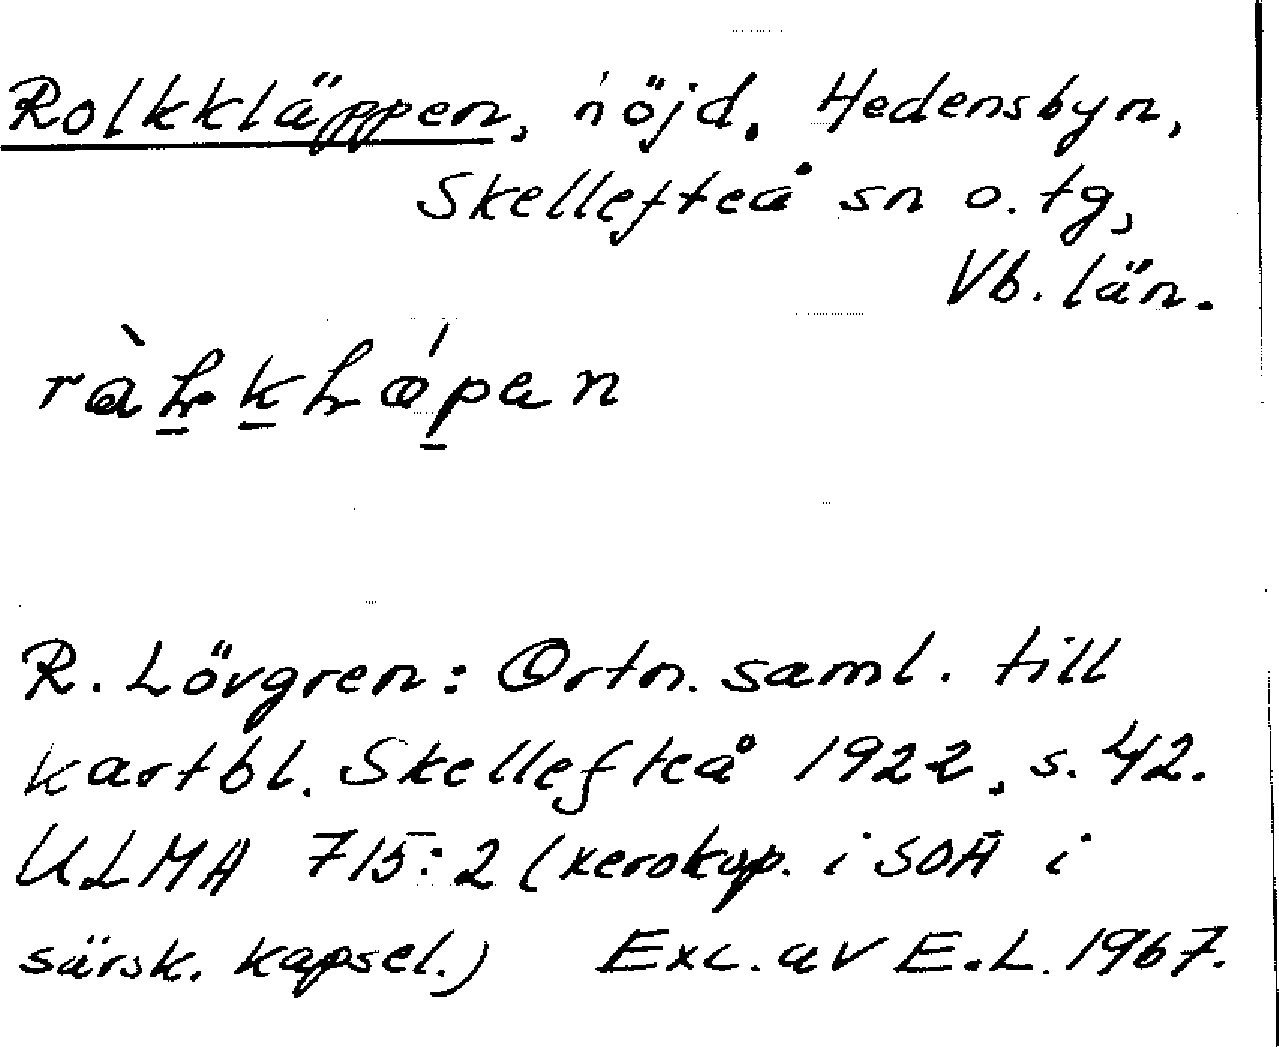 Rolkkläppen, höjd. Hedensbyn,
Skellefteå sn o. tg,
Vb. län.
R. Lövgren: Ortn. saml. till
kartbl. Skellefteå 1922, s. 42.
ULMA 715:2 (xerokop. i SOA i
särsk. kapsel.) Exc. av E.L. 1967.